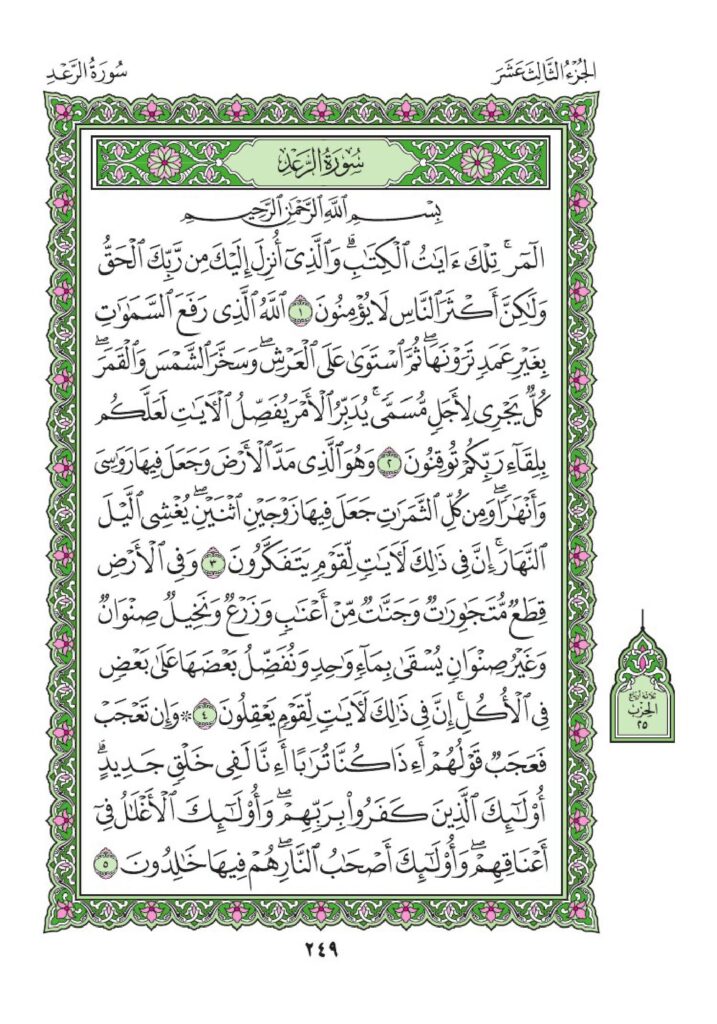 الجزء الثالث عشر
سورة الرعد
سُورَةُ الرَّعْدِ
بِسْمِ ٱللَّهِ ٱلرَّحْمَٰنِ ٱلرَّحِيمِ
الٓمٓرۚ تِلْكَ ءَايَٰتُ ٱلْكِتَٰبِۗ وَٱلَّذِىٓ أُنزِلَ إِلَيْكَ مِن رَّبِّكَ ٱلْحَقُّ
وَلَٰكِنَّ أَكْثَرَ ٱلنَّاسِ لَا يُؤْمِنُونَ ١ ٱللَّهُ ٱلَّذِى رَفَعَ ٱلسَّمَٰوَٰتِ
بِغَيْرِ عَمَدٍ تَرَوْنَهَاۖ ثُمَّ ٱسْتَوَىٰ عَلَى ٱلْعَرْشِۖ وَسَخَّرَ ٱلشَّمْسَ وَٱلْقَمَرَۖ
كُلٌّ يَجْرِى لِأَجَلٍ مُّسَمًّىۚ يُدَبِّرُ ٱلْأَمْرَ يُفَصِّلُ ٱلْءَايَٰتِ لَعَلَّكُم
بِلِقَآءِ رَبِّكُمْ تُوقِنُونَ ٢ وَهُوَ ٱلَّذِى مَدَّ ٱلْأَرْضَ وَجَعَلَ فِيهَا رَوَٰسِىَ
وَأَنْهَٰرًاۖ وَمِن كُلِّ ٱلثَّمَرَٰتِ جَعَلَ فِيهَا زَوْجَيْنِ ٱثْنَيْنِۖ يُغْشِى ٱلَّيْلَ
ٱلنَّهَارَۚ إِنَّ فِى ذَٰلِكَ لَءَايَٰتٍ لِّقَوْمٍ يَتَفَكَّرُونَ ٣ وَفِى ٱلْأَرْضِ
قِطَعٌ مُّتَجَٰوِرَٰتٌ وَجَنَّٰتٌ مِّنْ أَعْنَٰبٍ وَزَرْعٌ وَنَخِيلٌ صِنْوَانٌ
وَغَيْرُ صِنْوَانٍ يُسْقَىٰ بِمَآءٍ وَٰحِدٍ وَنُفَضِّلُ بَعْضَهَا عَلَىٰ بَعْضٍ
فِى ٱلْأُكُلِۚ إِنَّ فِى ذَٰلِكَ لَءَايَٰتٍ لِّقَوْمٍ يَعْقِلُونَ ٤ ۞ وَإِن تَعْجَبْ
فَعَجَبٌ قَوْلُهُمْ أَءِذَا كُنَّا تُرَٰبًا أَءِنَّا لَفِى خَلْقٍ جَدِيدٍۗ
أُو۟لَٰٓئِكَ ٱلَّذِينَ كَفَرُوا۟ بِرَبِّهِمْۖ وَأُو۟لَٰٓئِكَ ٱلْأَغْلَٰلُ فِىٓ
أَعْنَاقِهِمْۖ وَأُو۟لَٰٓئِكَ أَصْحَٰبُ ٱلنَّارِۖ هُمْ فِيهَا خَٰلِدُونَ ٥
ثلاثة أرباع
الحزب
٢٥
٢٤٩